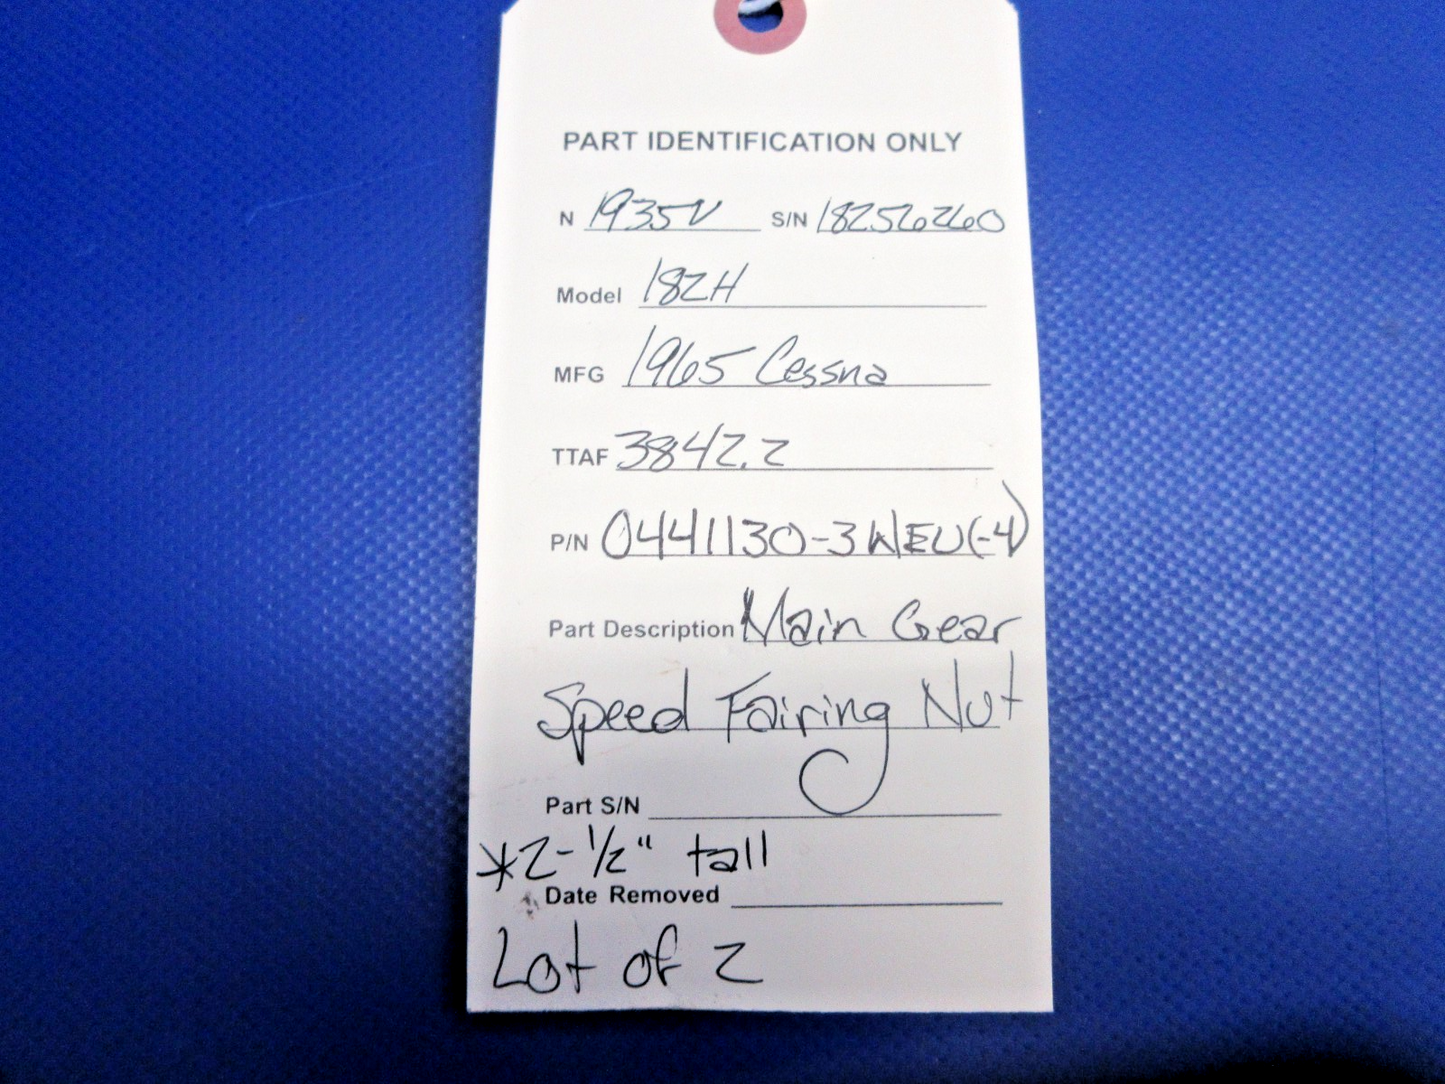 PART IDENTIFICATION ONLY
N 1935V S/N 18256260
Model 182H
MFG 1965 Cessna
TTAF 3842.2
P/N 0441130-3 WEU(-4)
Part Description Main Gear
Speed Fairing Nut
Part S/N
*2-1/2" tall
Date Removed
Lot of 2